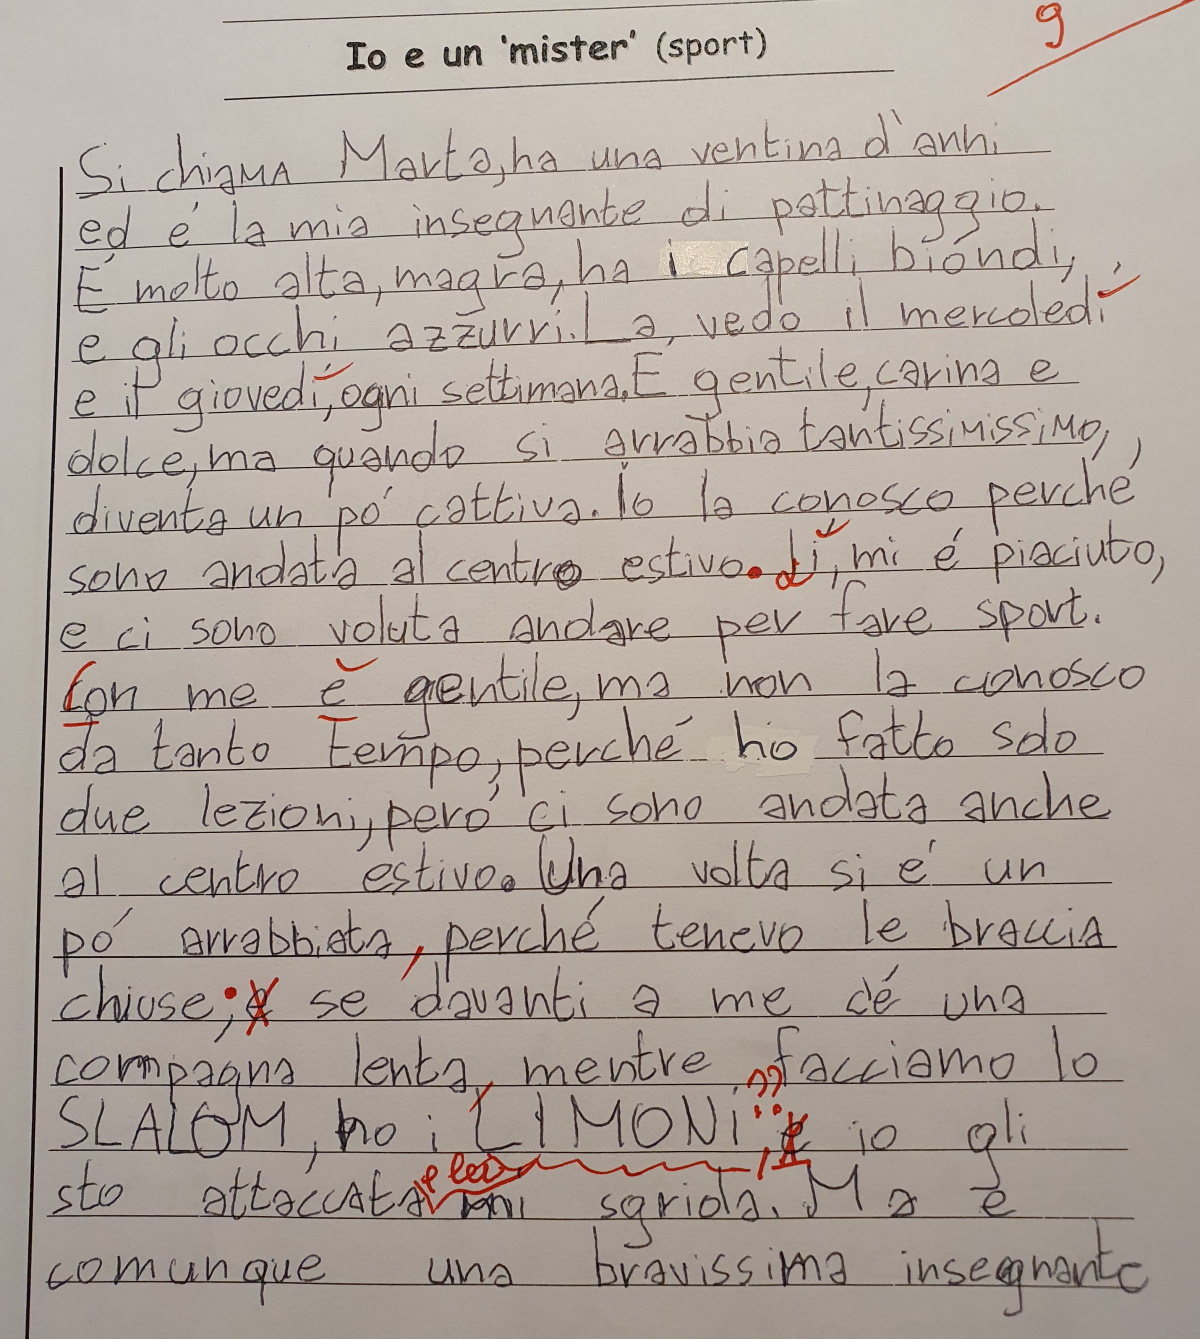 9
Io e un 'mister' (sport)
Si chiama Marta, ha una ventina d'anni
ed é la mia insegnante di pattinaggio.
É molto alta, magra, ha i capelli biondi,
e gli occhi azzurri. La vedo il mercoledí
e il giovedí, ogni settimana. É gentile, carina e
dolce, ma quando si arrabbia tantissimissimo,
diventa un pó cattiva. Io la conosco perché
sono andata al centro estivo. Lí, mi é piaciuto,
e ci sono voluta andare per fare sport.
Con me è gentile, ma non la conosco
da tanto tempo, perché ho fatto solo
due lezioni, peró ci sono andata anche
al centro estivo. Una volta si é un
pó arrabbiata, perché tenevo le braccia
chiuse; e se davanti a me c'é una
compagna lenta, mentre facciamo lo
SLALOM, ho i "LIMONI": e io gli
e lei
sto attaccata mi sgrida. Ma è
comunque una bravissima insegnante